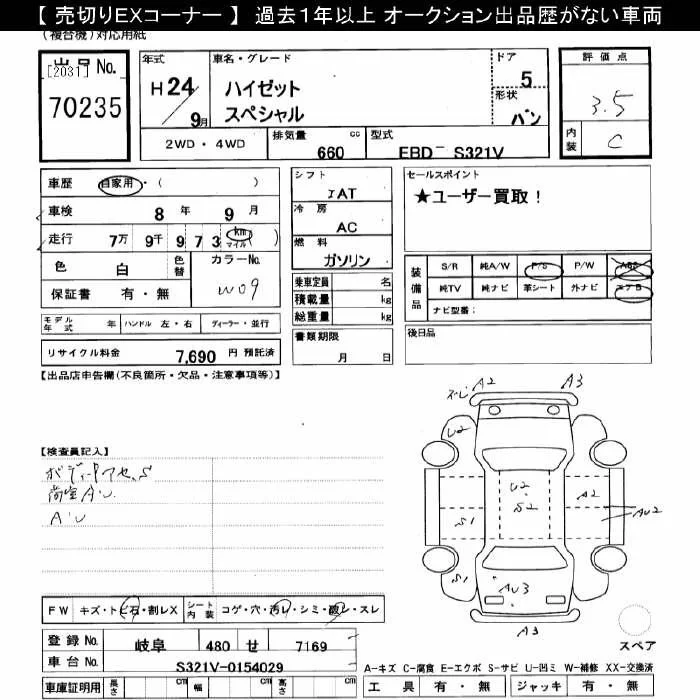 【 売切りEXコーナー 】 過去1年以上 オークション出品歴がない車両
(複合機)対応用紙
出品No.
[2031]
70235
年式
H 24/9月
車名・グレード
ハイゼット
スペシャル
ドア
5
形状
バン
評価点
3.5
内装
C
2WD・4WD
排気量
660 cc
型式
EBD- S321V
車歴 自家用・( )
車検 8 年 9 月
走行 7万 9千 9 7 3 km マイル ( )
色 白
色替
カラーNo.
W09
保証書 有・無
シフト
IAT
冷房
AC
燃料
ガソリン
乗車定員 名
積載量 kg
総重量 kg
書類期限
月 日
セールスポイント
★ユーザー買取!
装備品
S/R 純A/W P/S P/W ABS
純TV 純ナビ 革シート 外ナビ エアB
ナビ型番:
後日品
モデル年式 年 ハンドル 左・右 ディーラー・並行
リサイクル料金 7,690 円 預託済
【出品店申告欄(不良箇所・欠品・注意事項等)】
【検査員記入】
荷室AU
AU
A2
A3
U2
U2
S2
A2
AU2
S1
S1
AU3
A3
スペア
FW キズ・トビ石・割レX
シート内装 コゲ・穴・汚レ・シミ・破レ・スレ
登録No. 岐阜 480 せ 7169
車台No. S321V-0154029
車庫証明用 長さ cm 幅 cm 高さ cm
A-キズ C-腐食 E-エクボ S-サビ U-凹ミ W-補修 XX-交換済
工具 有・無 ジャッキ 有・無